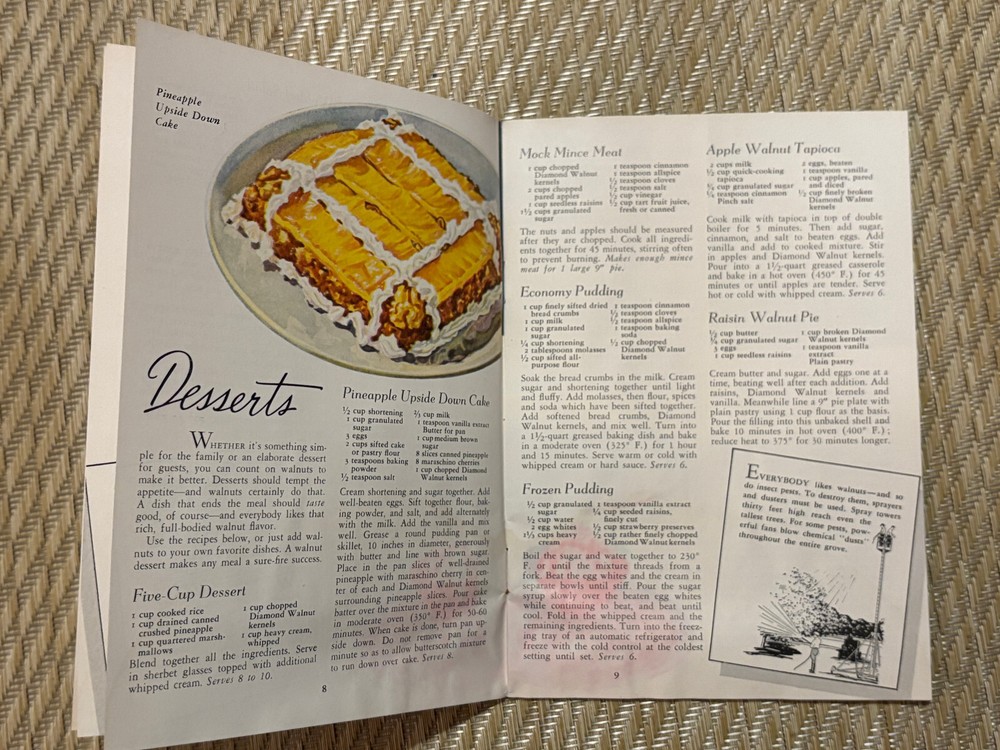 Pineapple
Upside Down
Cake
Desserts
WHETHER it's something sim-
ple for the family or an elaborate dessert
for guests, you can count on walnuts to
make it better. Desserts should tempt the
appetite—and walnuts certainly do that.
A dish that ends the meal should taste
good, of course—and everybody likes that
rich, full-bodied walnut flavor.
Use the recipes below, or just add wal-
nuts to your own favorite dishes. A walnut
dessert makes any meal a sure-fire success.
Five-Cup Dessert
1 cup cooked rice
1 cup drained canned
crushed pineapple
1 cup quartered marsh-
mallows
1 cup chopped
Diamond Walnut
kernels
1 cup heavy cream,
whipped
Blend together all the ingredients. Serve
in sherbet glasses topped with additional
whipped cream. Serves 8 to 10.
Pineapple Upside Down Cake
½ cup shortening
1 cup granulated
sugar
3 eggs
2 cups sifted cake
or pastry flour
3 teaspoons baking
powder
½ teaspoon salt
⅔ cup milk
1 teaspoon vanilla extract
Butter for pan
1 cup medium brown
sugar
8 slices canned pineapple
8 maraschino cherries
1 cup chopped Diamond
Walnut kernels
Cream shortening and sugar together. Add
well-beaten eggs. Sift together flour, bak-
ing powder, and salt, and add alternately
with the milk. Add the vanilla and mix
well. Grease a round pudding pan or
skillet, 10 inches in diameter, generously
with butter and line with brown sugar.
Place in the pan slices of well-drained
pineapple with maraschino cherry in cen-
ter of each and Diamond Walnut kernels
surrounding pineapple slices. Pour cake
batter over the mixture in the pan and bake
in moderate oven (350° F.) for 50-60
minutes. When cake is done, turn pan up-
side down. Do not remove pan for a
minute so as to allow butterscotch mixture
to run down over cake. Serves 8.
8
Mock Mince Meat
1 cup chopped
Diamond Walnut
kernels
2 cups chopped
pared apples
1 cup seedless raisins
1½ cups granulated
sugar
1 teaspoon cinnamon
1 teaspoon allspice
½ teaspoon cloves
½ teaspoon salt
½ cup vinegar
½ cup tart fruit juice,
fresh or canned
The nuts and apples should be measured
after they are chopped. Cook all ingredi-
ents together for 45 minutes, stirring often
to prevent burning. Makes enough mince
meat for 1 large 9" pie.
Economy Pudding
1 cup finely sifted dried
bread crumbs
1 cup milk
1 cup granulated
sugar
¼ cup shortening
2 tablespoons molasses
½ cup sifted all-
purpose flour
1 teaspoon cinnamon
½ teaspoon cloves
½ teaspoon allspice
1 teaspoon baking
soda
½ cup chopped
Diamond Walnut
kernels
Soak the bread crumbs in the milk. Cream
sugar and shortening together until light
and fluffy. Add molasses, then flour, spices
and soda which have been sifted together.
Add softened bread crumbs, Diamond
Walnut kernels, and mix well. Turn into
a 1½-quart greased baking dish and bake
in a moderate oven (325° F.) for 1 hour
and 15 minutes. Serve warm or cold with
whipped cream or hard sauce. Serves 6.
Frozen Pudding
½ cup granulated
sugar
½ cup water
2 egg whites
1½ cups heavy
cream
1 teaspoon vanilla extract
¼ cup seeded raisins,
finely cut
½ cup strawberry preserves
½ cup rather finely chopped
Diamond Walnut kernels
Boil the sugar and water together to 230°
F. or until the mixture threads from a
fork. Beat the egg whites and the cream in
separate bowls until stiff. Pour the sugar
syrup slowly over the beaten egg whites
while continuing to beat, and beat until
cool. Fold in the whipped cream and the
remaining ingredients. Turn into the freez-
ing tray of an automatic refrigerator and
freeze with the cold control at the coldest
setting until set. Serves 6.
Apple Walnut Tapioca
2 cups milk
½ cup quick-cooking
tapioca
¾ cup granulated sugar
¼ teaspoon cinnamon
Pinch salt
2 eggs, beaten
1 teaspoon vanilla
1 cup apples, pared
and diced
½ cup finely broken
Diamond Walnut
kernels
Cook milk with tapioca in top of double
boiler for 5 minutes. Then add sugar,
cinnamon, and salt to beaten eggs. Add
vanilla and add to cooked mixture. Stir
in apples and Diamond Walnut kernels.
Pour into a 1½-quart greased casserole
and bake in a hot oven (450° F.) for 45
minutes or until apples are tender. Serve
hot or cold with whipped cream. Serves 6.
Raisin Walnut Pie
½ cup butter
¾ cup granulated sugar
3 eggs
1 cup seedless raisins
1 cup broken Diamond
Walnut kernels
1 teaspoon vanilla
extract
Plain pastry
Cream butter and sugar. Add eggs one at a
time, beating well after each addition. Add
raisins, Diamond Walnut kernels and
vanilla. Meanwhile line a 9" pie plate with
plain pastry using 1 cup flour as the basis.
Pour the filling into this unbaked shell and
bake 10 minutes in hot oven (400° F.);
reduce heat to 375° for 30 minutes longer.
EVERYBODY likes walnuts—and so
do insect pests. To destroy them, sprayers
and dusters must be used. Spray towers
thirty feet high reach even the
tallest trees. For some pests, pow-
erful fans blow chemical "dusts"
throughout the entire grove.
9